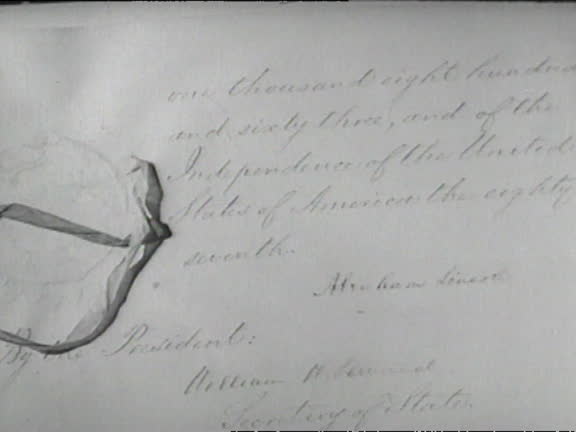 one thousand eight hundred
and sixty three, and of the
Independence of the United
States of America the eighty
seventh.
Abraham Lincoln
By the President:
William H. Seward
Secretary of State.